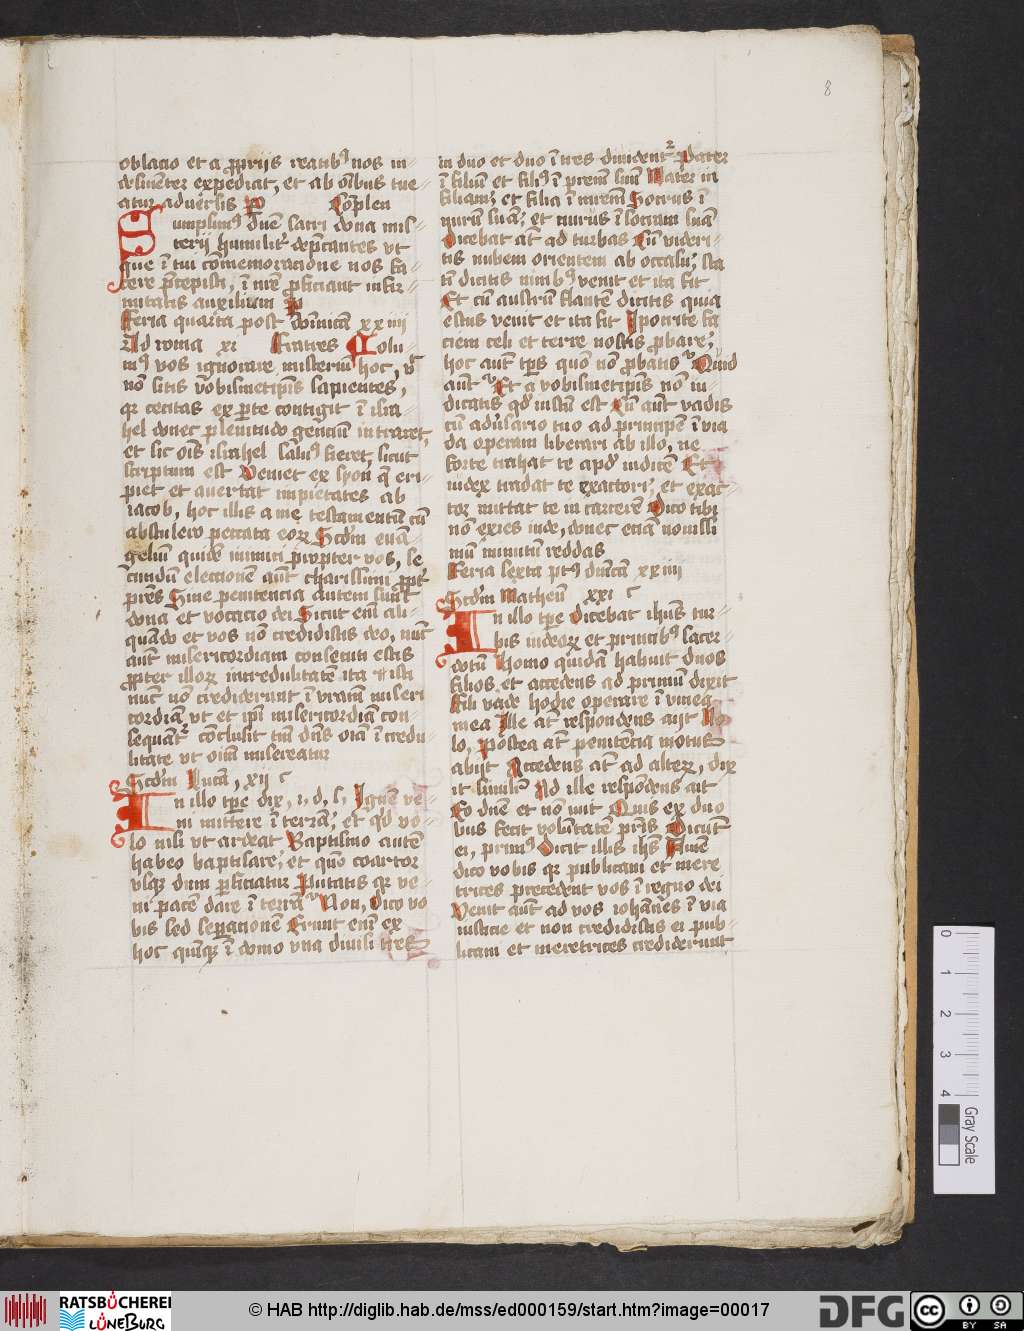 8
oblacio et a p̱priis reatibꝰ nos in
definenter expediat, et ab om̄ibus tue
atur aduersis P Co̅plen
Sumpsimꝰ dn̄e sacri dona mis
terij humilitͬ dep̄cantes vt
que ī tui co̅memoracione nos fa
cere p̄cepisti, ī nr̄e p̱ficiant infir
mitatis auxilium P
Feria quarta post dn̄icā xxiiii
Ad roma xi Fratres Nolu
mꝰ vos ignorare misteriū hoc, vͭ
nō sitis vobismetip̄is sapientes,
qꝛ cecitas ex p̲te contigit ī isra
hel donec plenitudo gēciū intraret,
et sic om̄s israhel saluꝰ fieret, sicut
scriptum est Veniet ex syon q̄ eri
piet et auertat impietates ab
iacob, hoc illis a me testamentū cū
abstulero peccata eoꝝ Scd̄m euā
geliū quidē inimici propter vos, se
cundū electionē aūt charissimi p̱pͭ
pr̄es Sine penitencia autem sunt
dona et vocacio dei Sicut em̄ ali
quādo et vos nō credidistis deo, nūc
aūt misericordiam consecuti estis
p̱pter illoꝝ incredulitatē ita et isti
nūc nō crediderunt ī vr̄am miseri
cordiā vt et ip̄i misericordiā con
sequātͬ co̅clusit em̄ dn̄s om̄ia ī credu
litate vt om̄iū misereatur
Scd̄m Lucā, xii c
In illo tp̄e dix, i, d, s, Ignē ve
ni mittere ī terrā, et qd̄ vo
lo nisi vt ardeat Baptismo autē
habeo baptisari, et quō coartor
vsqꝫ dum p̲ficiatur Putatis qꝛ ve
ni pacē dare ī terrā Non, Dico vo
bis sed sep̲acionē Erunt em̄ ex
hoc quīqꝫ ī domo vna diuisi tres
in duo et duo ī tres diuidentͬ Pater
ī filiū et filiꝰ ī prem̄ suū Mater in
filiam, et filia ī mr̄em Socrus ī
nurū suā, et nurus ī socrum suā
Dicebat aūt ad turbas Cū videri
tis nubem orientem ab occasu, sta
tī dicitis nimbꝰ venit et ita fit
Et cū austrū flantē dicitis quia
estus venit et ita fit Ipocrite fa
ciem celi et terre nostis p̱bare,
hoc aūt tp̄s quō nō p̱batis Quid
aūt Et a vobismetip̄is nō iu
dicatis qd̄ iustū est Cū aūt vadis
cū adu̲sario tuo ad principē ī via
da operam liberari ab illo, ne
forte trahat te apd̄ iudicē Et
iudex tradat te exactori, et exac
tor mittat te in carcerē Dico tibi
nō exies inde, donec eciā nouissi
mū minutū reddas
Feria sexta ptꝰ dn̄icā xxiiii
Scd̄m Matheū xxi c
In illo tp̄e Dicebat ihūs tur
bis iudeoꝝ et principibꝰ sacer
dotū Homo quidā habuit duos
filios et accedens ad primū dixit
Fili vade hodie operare ī vinea
mea Ille aūt respondens aijt No
lo, Postea aūt penitēcia motus
abijt Accedens aūt ad alteꝝ, dix
it similitͬ Ad ille respōdens ait
Eo dn̄e et nō iuit Quis ex duo
bus fecit volūtatē pr̄is Dicūt
ei, primꝰ Dicit illis ih̄s Amē
dico vobis qꝛ publicani et mere
trices precedent vos ī regno dei
Venit aūt ad vos iohānes ī via
iusticie et non credidistis ei pub
licani et meretrices crediderunt
0 1 2 3 4 Gray Scale
RATSBÜCHEREI
LÜNEBURG
© HAB http://diglib.hab.de/mss/ed000159/start.htm?image=00017
DFG
cc BY SA